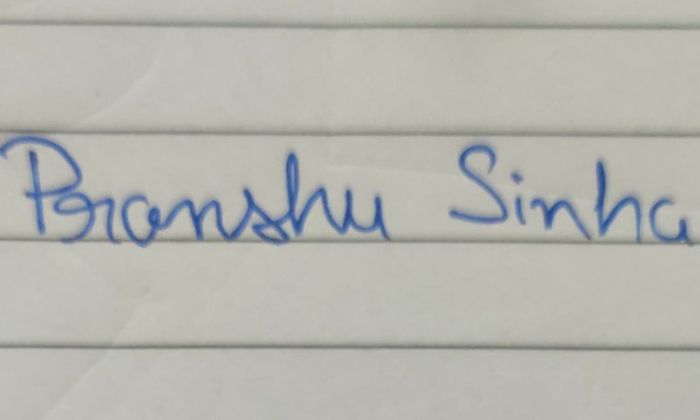 Pranshu Sinha